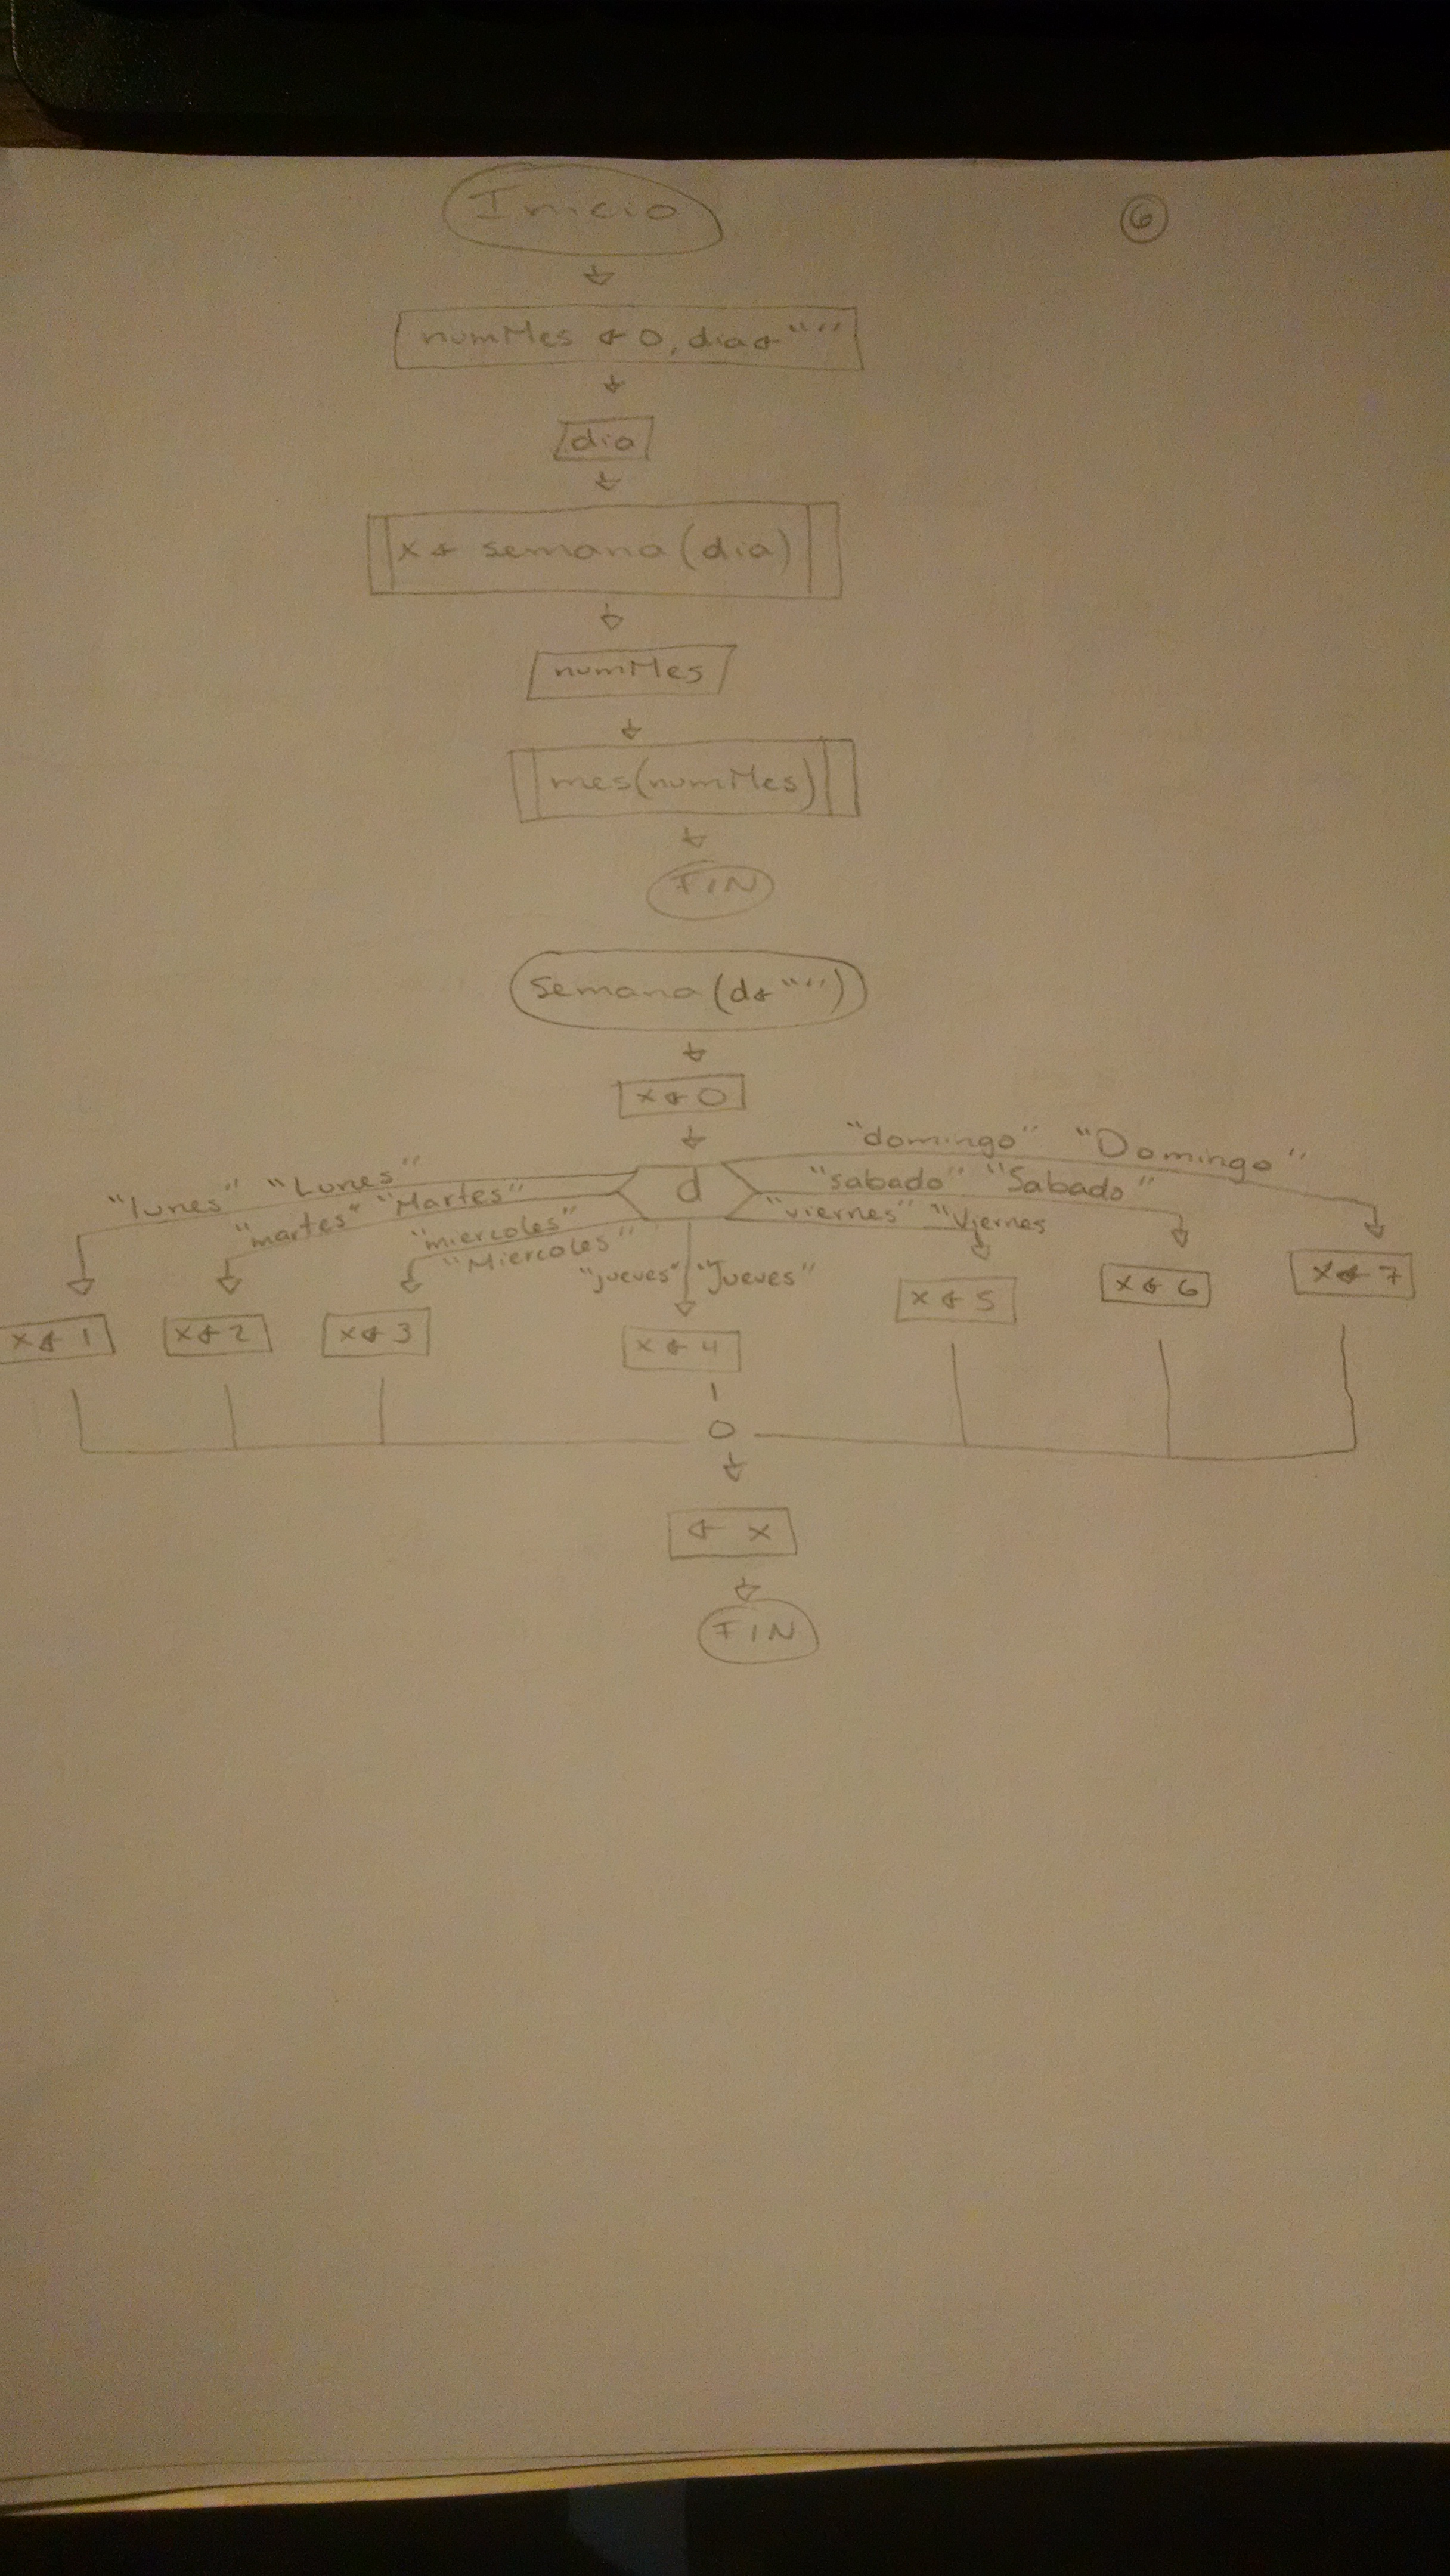 Inicio
6
numMes ← 0, dia ← ""
dia
x ← semana (dia)
numMes
mes(numMes)
FIN
Semana (d ← "")
x ← 0
d
"lunes" "Lunes"
"martes" "Martes"
"miercoles"
"Miercoles"
"jueves" "Jueves"
"viernes" "Viernes
"sabado" "Sabado"
"domingo" "Domingo"
x ← 1
x ← 2
x ← 3
x ← 4
x ← 5
x ← 6
x ← 7
← x
FIN